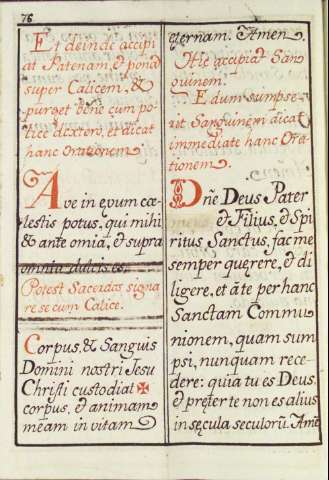 76
Et deinde accipi
at Patenam, et ponat
super Calicem, &
purget bene cum po-
llice dextero, et dicat
hanc Orationem
Ave in ęvum cœ-
lestis potus, qui mihi
& ante omia, & supra
omnia dulcis es.
Potest Sacerdos signa
re se cum Calice.
Corpus, & Sanguis
Domini nostri Jesu
Christi custodiat ✠
corpus, & animam
meam in vitam
ęternam. Amen
Hic accipiat San
guinem.
Et dum sumpse-
rit Sanguinem dicat
immediate hanc Ora
tionem
Dñe Deus Pater
& Filius, & Spi
ritus Sanctus, fac me
semper quęrere, & di
ligere, et à te per hanc
Sanctam Commu
nionem, quam sum
psi, nunquam rece
dere: quia tu es Deus,
& pręter te non es alius
in sęcula seculorũ. Amẽ